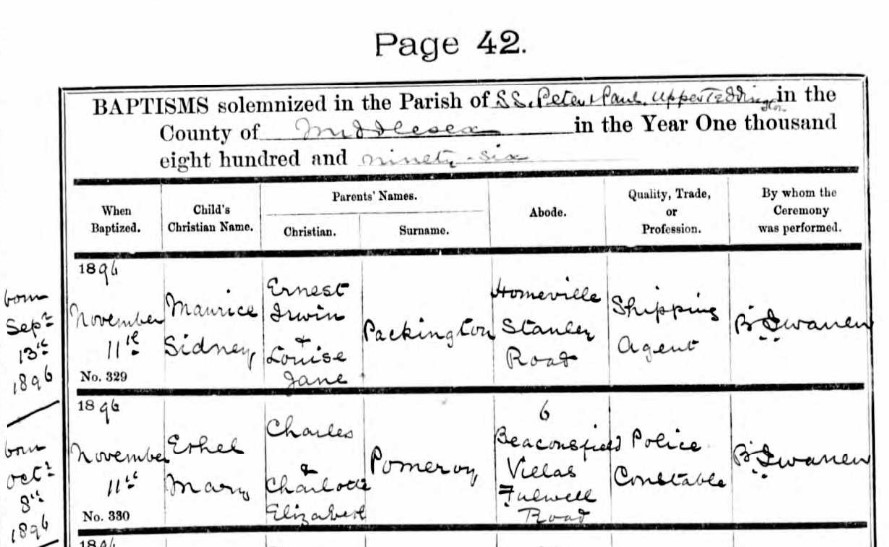 Page 42.
BAPTISMS solemnized in the Parish of S.S. Peter & Paul Upper Teddington in the
County of Middlesex in the Year One thousand
eight hundred and ninety-six
When
Baptized.
Child's
Christian Name.
Parents' Names.
Christian.
Surname.
Abode.
Quality, Trade,
or
Profession.
By whom the
Ceremony
was performed.
born
Sept
13th
1896
1896
November
11th
No. 329
Maurice
Sidney
Ernest
Irwin
&
Louise
Jane
Packington
Homeville
Stanley
Road
Shipping
Agent
born
Oct
8th
1896
1896
November
11th
No. 330
Ethel
Mary
Charles
&
Charlotte
Elizabeth
Pomeroy
6
Beaconsfield
Villas
Fulwell
Road
Police
Constable
1896